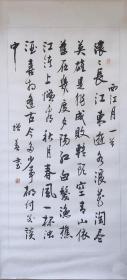 西江月一首
滾滾長江東逝水浪花淘盡
英雄是非成敗轉頭空青山依
舊在幾度夕陽紅白髮漁樵
江渚上慣看秋月春風一壺濁
酒喜相逢古今多少事都付笑談
中 書